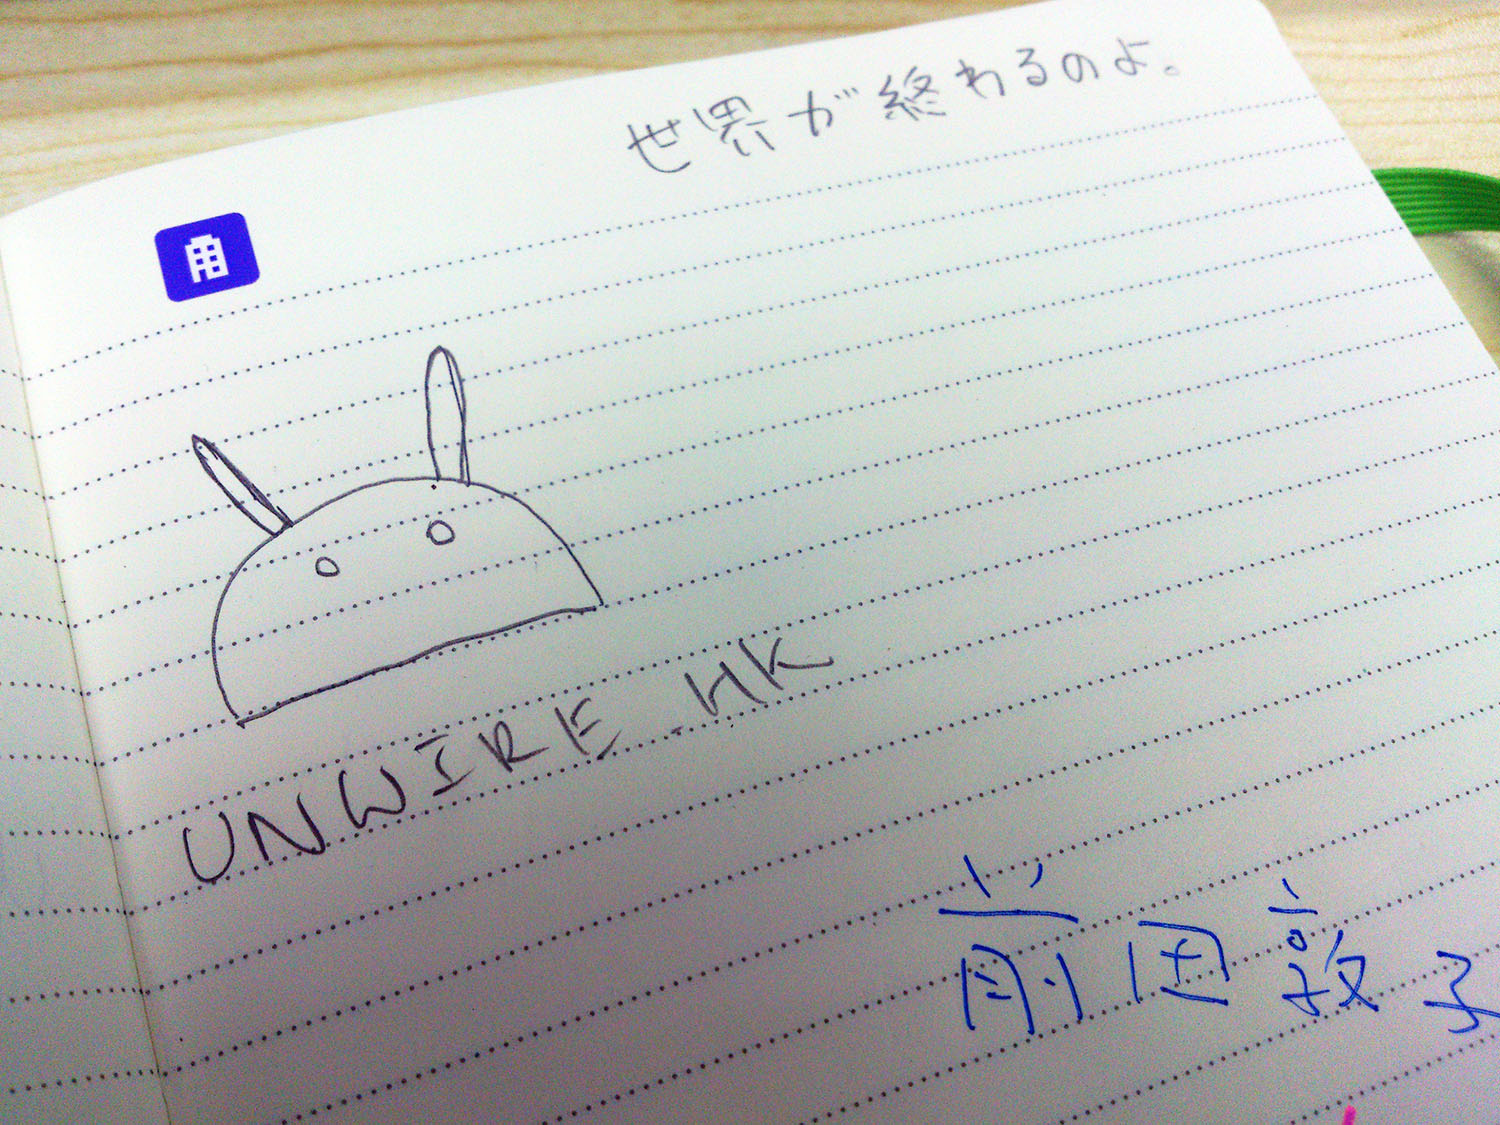 世界が終わるのよ。
UNWIRE.HK
前田敦子